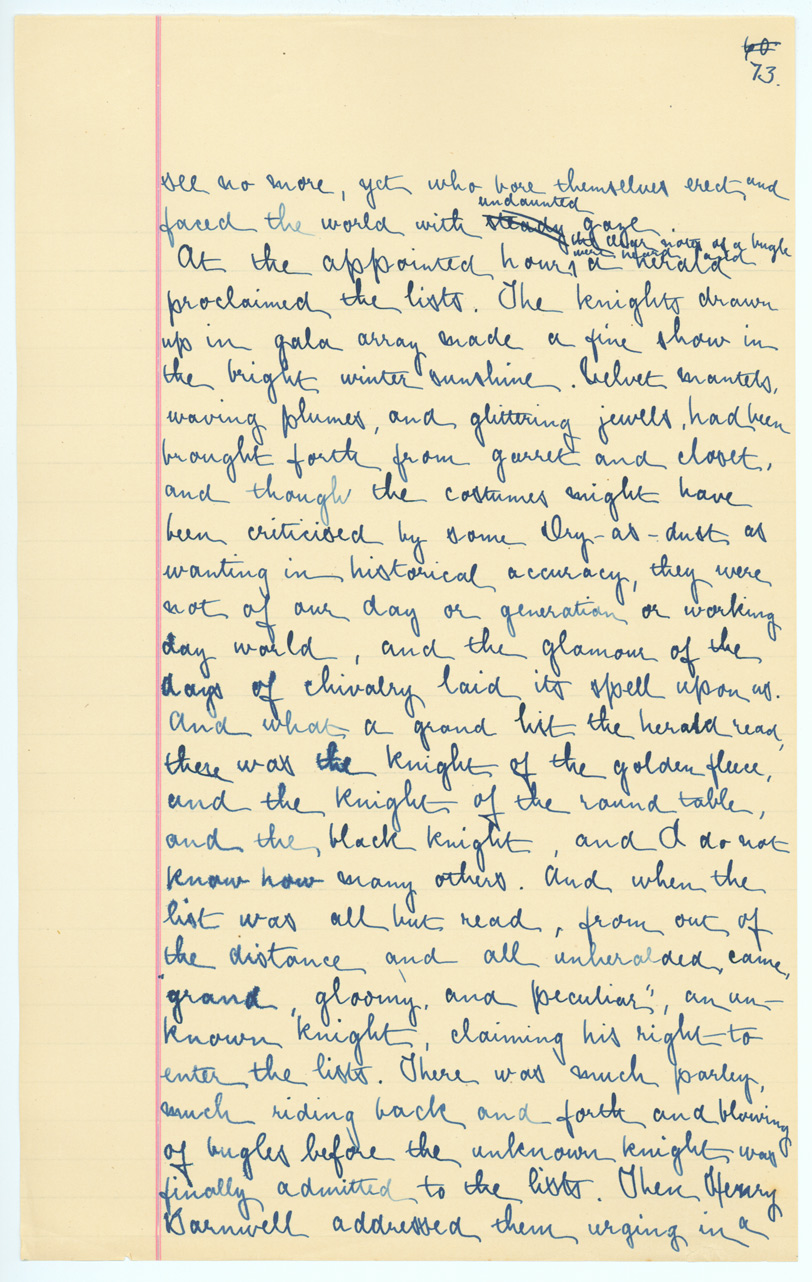 60.
73.
see no more, yet who bore themselves erect and
undaunted
faced the world with steady gaze.
the clear notes of a bugle
were heard and
At the appointed hour, a herald
proclaimed the lists. The knights drawn
up in gala array made a fine show in
the bright winter sunshine. Velvet mantels,
waving plumes, and glittering jewels, had been
brought forth from garret and closet,
and though the costumes might have
been criticised by some Dry-as-dust as
wanting in historical accuracy, they were
not of our day or generation or working
day world, and the glamour of the
days of chivalry laid its spell upon us.
And what a grand list the herald read,
there was the Knight of the golden fleece,
and the Knight of the round table,
and the black Knight, and I do not
know how many others. And when the
list was all but read, from out of
the distance and all unheralded, came,
"grand, gloomy, and peculiar", an un-
known knight, claiming his right to
enter the lists. There was much parley,
much riding back and forth and blowing
of bugles before the unknown knight was
finally admitted to the lists. Then Henry
Barnwell addressed them urging in a